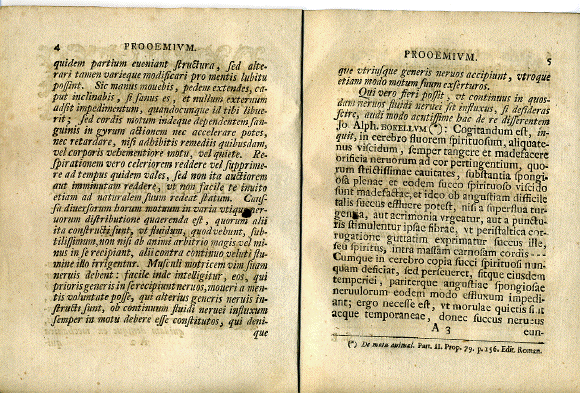 4 PROOEMIVM.
quidem partium eueniant ſtructura, ſed alte-
rari tamen varieque modificari pro mentis lubitu
poſſint. Sic manus mouebis, pedem extendes, ca-
put inclinabis, ſi ſanus es, et nullum externum
adſit impedimentum, quandocunque id tibi libue-
rit; ſed cordis motum indeque dependentem ſan-
guinis in gyrum actionem nec accelerare potes,
nec retardare, niſi adhibitis remediis quibuſdam,
vel corporis vehementiore motu, vel quiete. Re-
ſpirationem vero celeriorem reddere vel ſupprime-
re ad tempus quidem vales, ſed non ita auctiorem
aut imminutam reddere, vt non facile te inuito
etiam ad naturalem ſuum redeat ſtatum. Cauſ-
ſa diuerſorum horum motuum in varia vtique ner-
uorum diſtributione quaerenda eſt, quorum alii
ita conſtructi ſunt, vt fluidum, quod vehunt, ſub-
tiliſſimum, non niſi ab animi arbitrio magis vel mi-
nus in ſe recipiant, alii contra continuo veluti flu-
mine illo irrigentur. Muſculi motricem vim ſuam
neruis debent: facile inde intelligitur, eos, qui
prioris generis in ſe recipiunt neruos, moueri a men-
tis voluntate poſſe, qui alterius generis neruis in-
ſtructi ſunt, ob continuum fluidi neruei influxum
ſemper in motu debere eſſe conſtitutos, qui deni-
que
PROOEMIVM. 5
que vtriusque generis neruos accipiunt, vtroque
etiam modo motum ſuum exſerturos.
Qui vero fieri poſſit, vt continuus in quos-
dam neruos fluidi neruei ſit influxus, ſi deſideras
ſcire, audi modo acutiſſime hac de re diſſerentem
Jo. Alph. BORELLVM (*): Cogitandum eſt, in-
quit, in cerebro fluorem ſpirituoſum, aliquate-
nus viſcidum, ſemper tangere et madefacere
orificia neruorum ad cor pertingentium, quo-
rum ſtrictiſſimae cauitates, ſubſtantia ſpongi-
oſa plenae et eodem ſucco ſpirituoſo viſcido
ſunt madefactae, et ideo ob anguſtiam difficile
talis ſuccus effluere poteſt, niſi a ſuperflua tur-
gentia, aut acrimonia vrgeatur, aut a punctu-
ris ſtimulentur ipſae fibrae, vt periſtaltica cor-
rugatione guttatim exprimatur ſuccus ille,
ſeu ſpiritus, intra maſſam carnoſam cordis ---
Cumque in cerebro copia ſucci ſpirituoſi nun-
quam deficiat, ſed perſeueret, ſitque eiusdem
temperiei, pariterque anguſtiae ſpongioſae
neruulorum eodem modo effluxum impedi-
ant; ergo neceſſe eſt, vt morulae quietis ſint
aeque temporaneae, donec ſuccus nerueus
A 3 eun-
(*) De motu animal. Part. II. Prop. 79. p. 156. Edit. Roman.